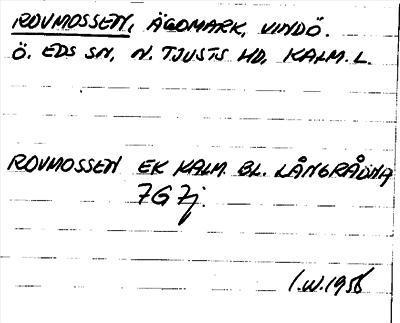 ROVMOSSEN, ÄGOMARK, VINDÖ.
Ö. EDS SN, N. TJUSTS HD, KALM. L.
ROVMOSSEN EK KALM. BL. LÅNGRÅDNA
7G 7j.
I.W. 1956